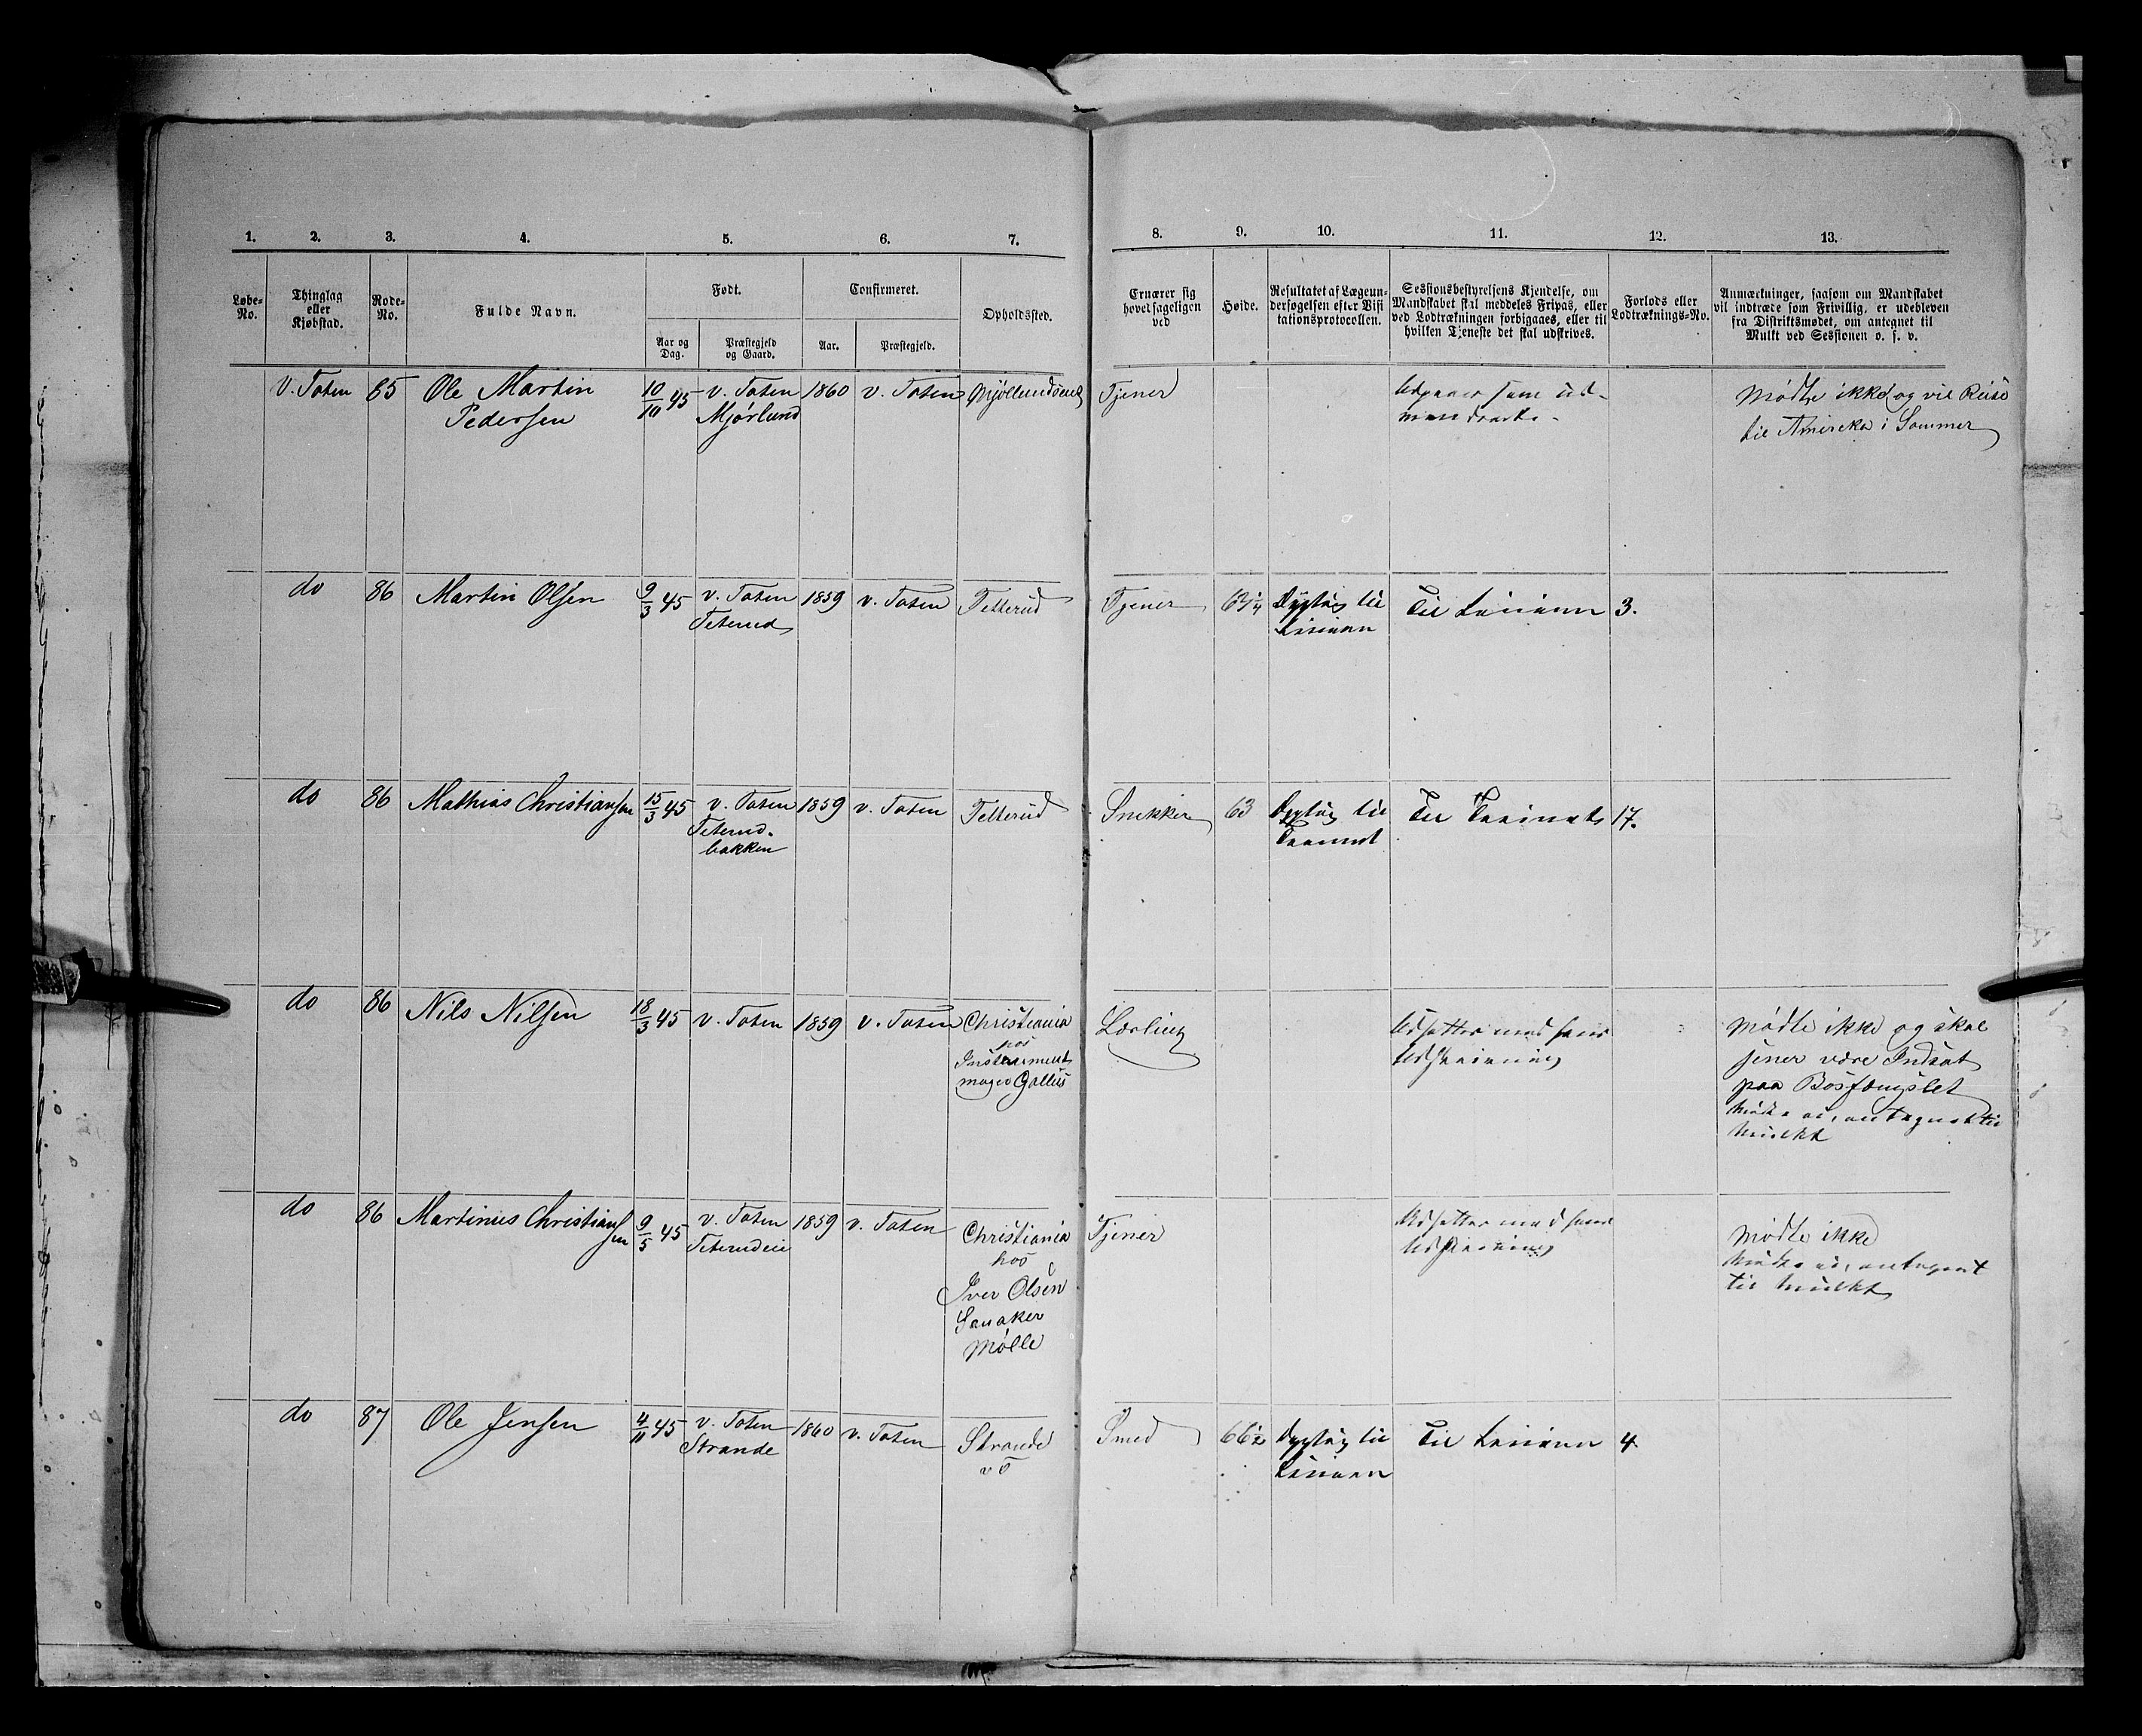 1. 2. 3. 4. 5. 6. 7. 8. 9. 10. 11. 12. 13.
Løbe-
No.
Thinglag
eller
Kjøbstad.
Rode-
No.
Fulde Navn.
Født.
Aar og
Dag.
Præstegjeld
og Gaard.
Confirmeret.
Aar.
Præstegjeld.
Opholdssted.
Ernærer sig
hovedsageligen
ved
Høide.
Resultatet af Lægeun-
dersøgelsen efter Visi
tationsprotocollen.
Sessionsbestyrelsens Kjendelse, om
Mandskabet skal meddeles Fripas, eller
ved Lodtrækningen forbigaaes, eller til
hvilken Tjeneste det skal udskrives.
Forlods eller
Lodtræknings-No.
Anmærkninger, saasom om Mandskabet
vil indtræde som Frivillig, er udebleven
fra Distriktsmødet, om antegnet til
Mulkt ved Sessionen o. s. v.
V. Toten 85 Ole Martin 10/10 45 V. Toten 1860 V. Toten Tjener Udgaaer som ud- Mødte ikke og vil Reise
Pedersen Mjørlund til Amireka i Sommer
do 86 Martin Olsen 9/3 45 V. Toten 1859 V. Toten Tetterud Tjener 64 1/4 Dygtig til Til Linien 3.
Teterud Linien
do 86 Mathias Christiansen 15/3 45 V. Toten 1859 V. Toten Tetterud Snekker 63 Dygtig til Til Trainet 17.
Teterud-
bakken Trainet
do 86 Nils Nilsen 18/3 45 V. Toten 1859 V. Toten Christiania Lærling Udsættes med hans Mødte ikke og skal
hos Udskrivning siener være Indsat
Instrument paa Bosfængslet
mager Gallus Mødte ei, antegnet til
Mulkt
do 86 Martinus Christiansen 9/5 45 V. Toten 1859 V. Toten Christiania Tjener Udsættes med hans Mødte ikke
Teterudeie hos Udskrivning Mødte ei, antegnet
Iver Olsen til Mulkt
Sanaker
Mølle
do 87 Ole Jensen 4/11 45 V. Toten 1860 V. Toten Strande Smed 66 1/2 Dygtig til Til Linien 4.
Strande Linien